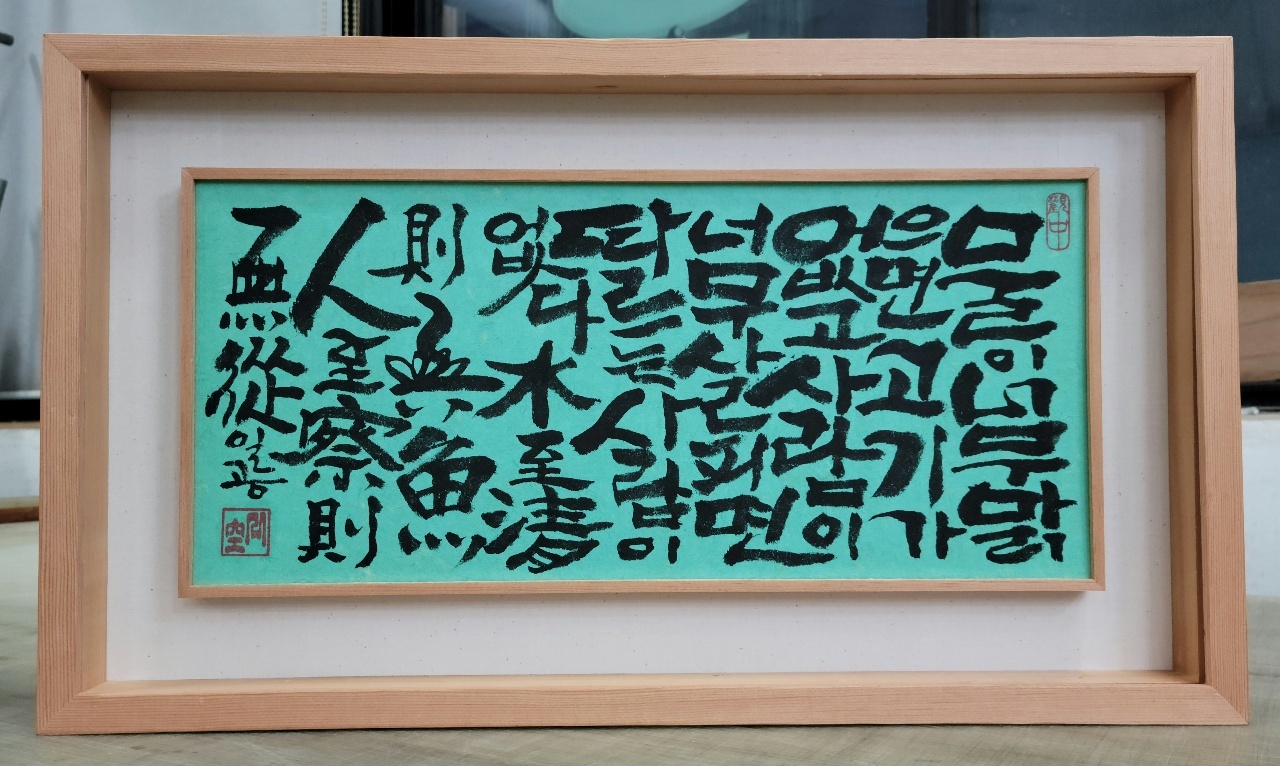 물이 너무 맑
으면 고기가
없고 사람이
너무 살피면
따르는 사람이
없다 水至清
則無魚
人至察則
無從 일공